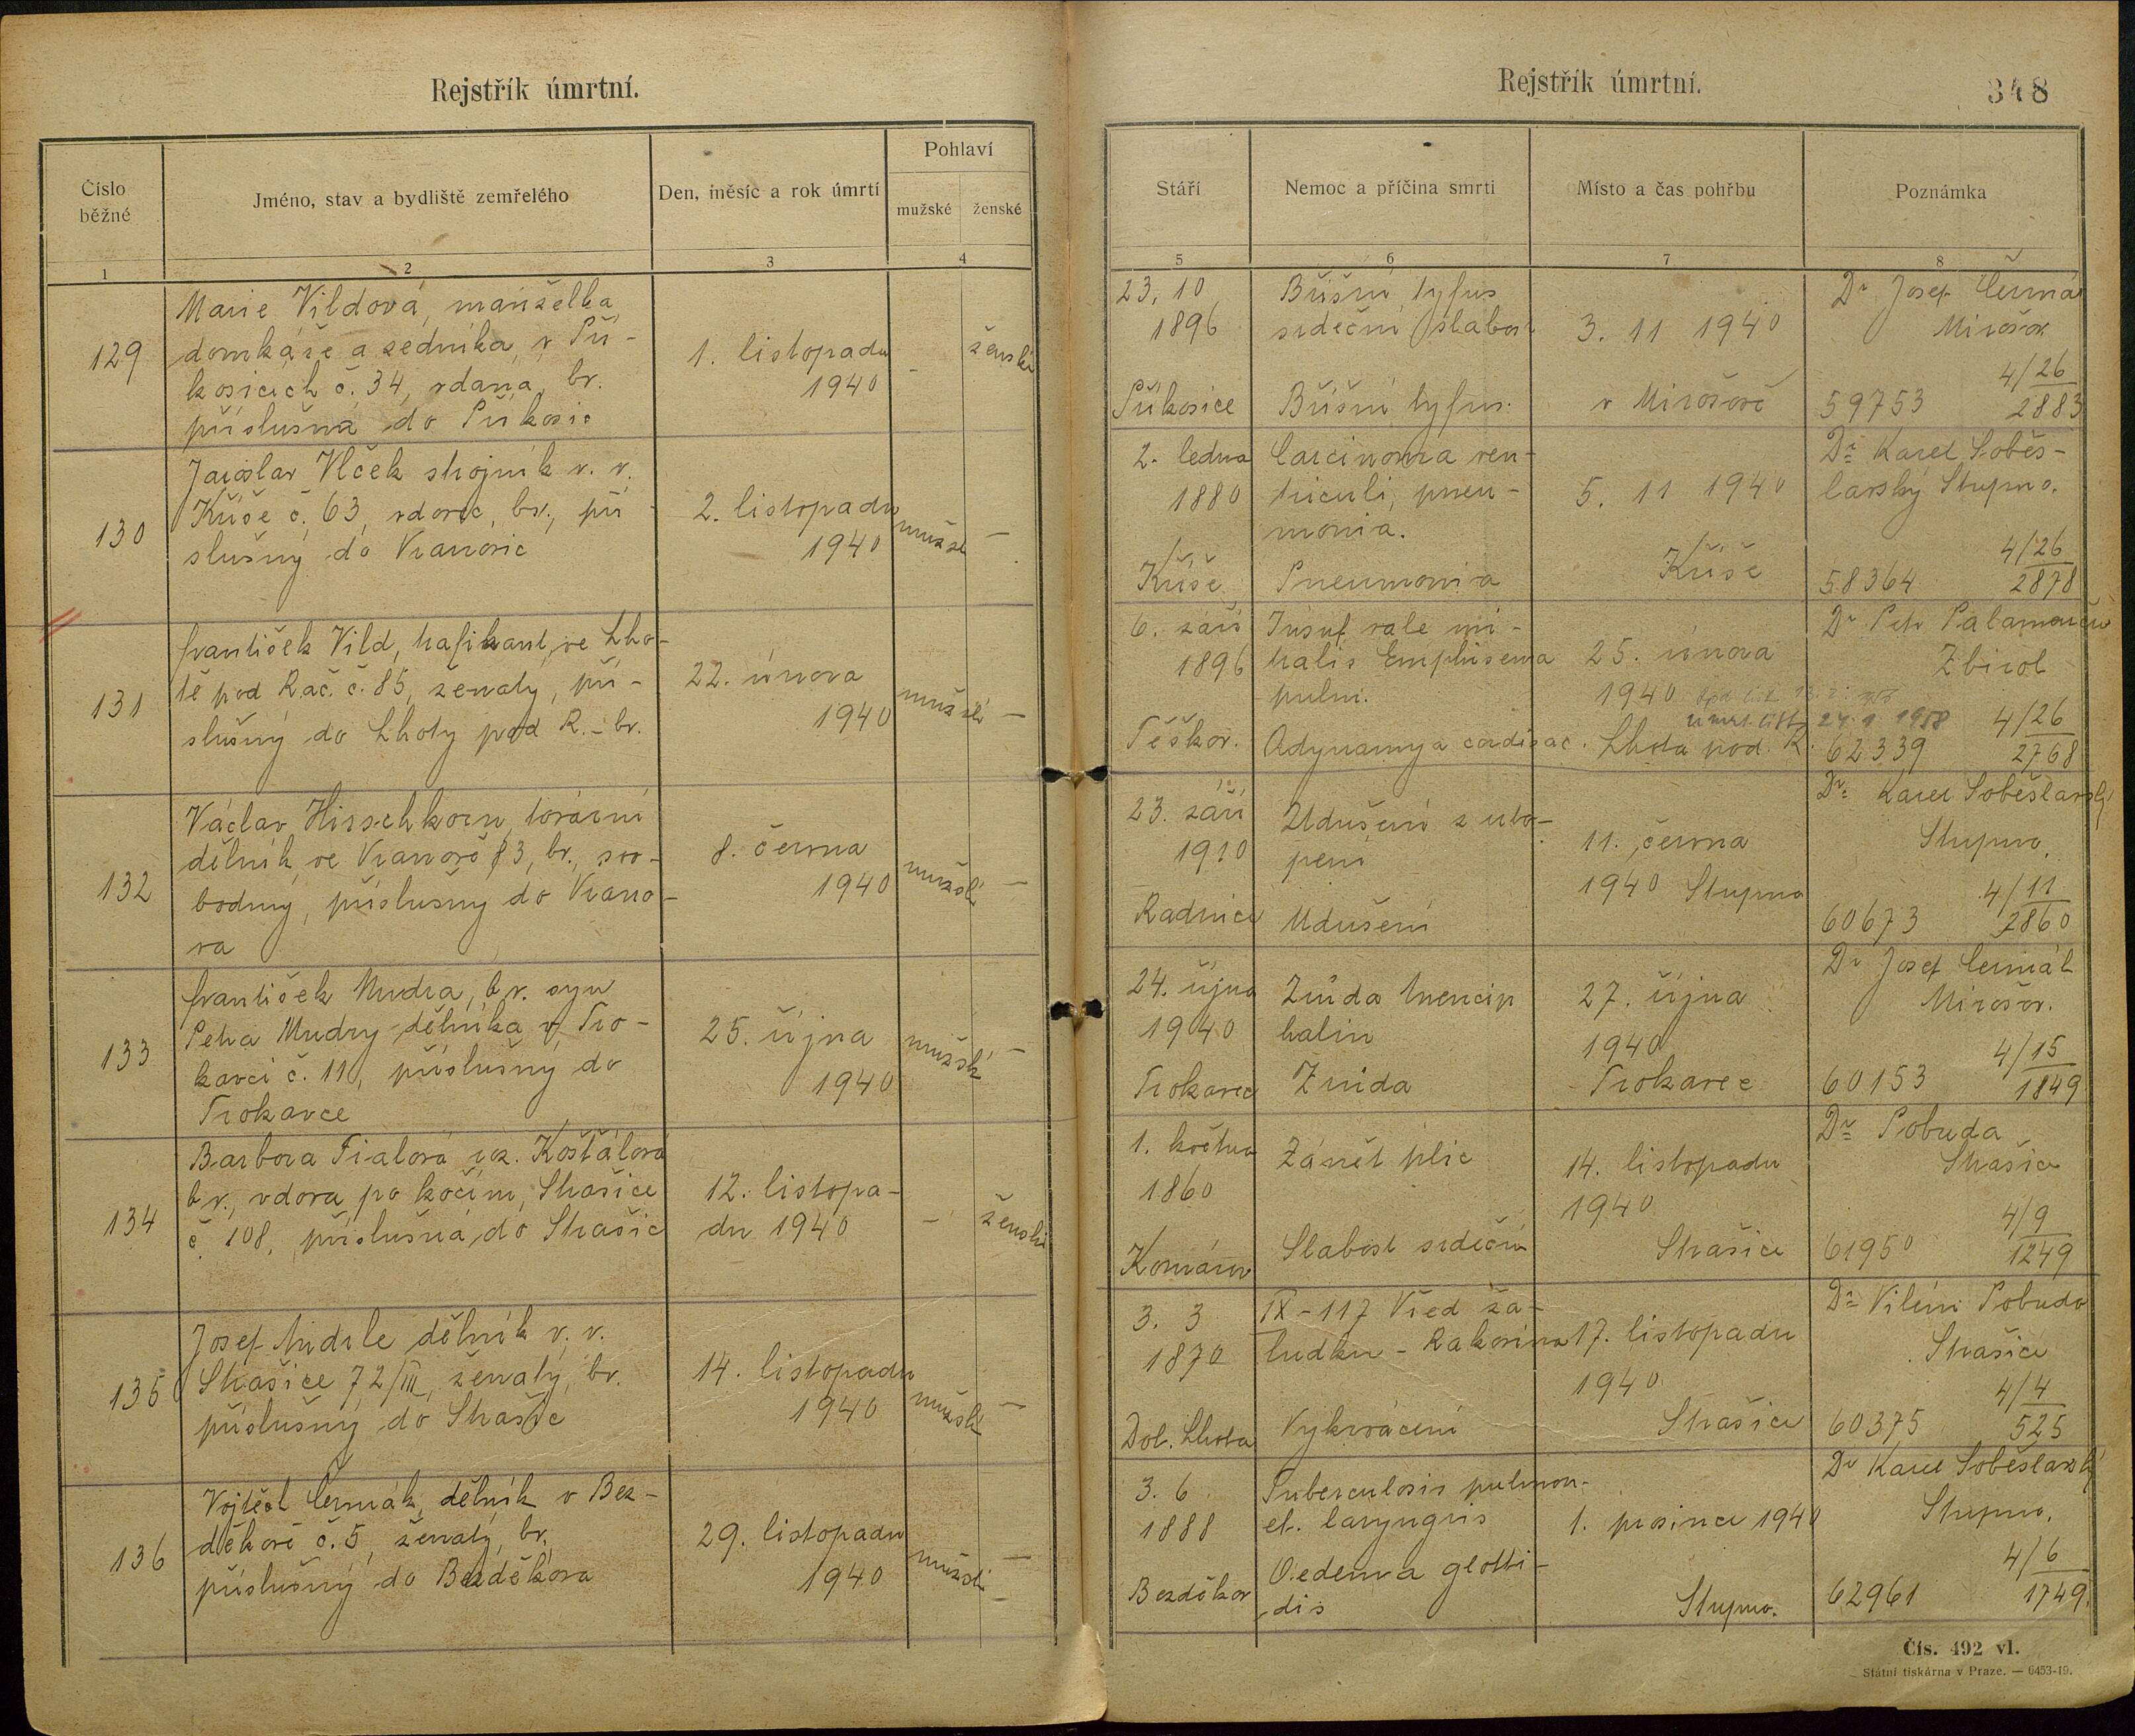 Rejstřík úmrtní.
Číslo běžné
Jméno, stav a bydliště zemřelého
Den, měsíc a rok úmrtí
Pohlaví
mužské ženské
1 2 3 4
129
Marie Vildová, manželka
domkáře a zedníka v Pří-
kosicích č. 34, vdaná, br.
příslušná do Příkosic
1. listopadu
1940
-
ženské
130
Jaroslav Vlček strojník v. v.
Kříše č. 63, vdovec, br., pří-
slušný do Vranovic
2. listopadu
1940
mužsk
-
131
František Vild, trafikant, ve Lho-
tě pod Rač. č. 85, ženatý, pří-
slušný do Lhoty pod R. - br.
22. února
1940
mužské
-
132
Václav Hirschkorn, tovární
dělník ve Vranově 83, br., svo-
bodný, příslušný do Vrano-
va
8. června
1940
mužské
-
133
František Mudra, br. syn
Petra Mudry dělníka v Tro-
kavci č. 11, příslušný do
Trokavce
25. října
1940
mužské
-
134
Barbora Fialová roz. Košťálová
br., vdova po kočím, Strašice
č. 108, příslušná do Strašic
12. listopa-
du 1940
-
ženské
135
Josef Nidrle dělník v. v.
Strašice 72/III, ženatý, br.
příslušný do Strašic
14. listopadu
1940
mužské
-
136
Vojtěch Čermák, dělník v Bez-
děkově č. 5, ženatý, br.,
příslušný do Bezděkova
29. listopadu
1940
mužské
-
Rejstřík úmrtní.
348
Stáří
Nemoc a příčina smrti
Místo a čas pohřbu
Poznámka
5 6 7 8
23. 10
1896
Příkosice
Břišní tyfus
srdeční slabost
Břišní tyfus.
3. 11 1940
v Mirošově
Dr Josef Čermák
Mirošov
4/26
59753 2883
2. ledna
1880
Kříše
Carcinoma ven-
triculi, pneu-
monia.
Pneumonia
5. 11 1940
Kříše
Dr Karel Soběs-
lavský Stupno.
4/26
58364 2878
6. září
1896
Těškov.
Insuf. valv. mi-
tralis Emphisema
pulm.
Adynamya cordiac.
25. února
1940
Lhota pod. R.
úmrt. list 24. 1 1958
Dr Petr
Zbiroh
4/26
62339 2768
23. září
1910
Radnice
Udušení z uto-
pení
Udušení
11. června
1940 Stupno
Dr. Karel Soběslavský
Stupno.
4/11
60673 2860
24. října
1940
Trokavec
Zrůda
Zrůda
27. října
1940
Trokavec
Dr Josef Čermák
Mirošov.
4/15
60153 1849
1. května
1860
Komárov
Zánět plic
Slabost srdeční
14. listopadu
1940
Strašice
Dr Pobuda
Strašice
4/9
61950 1249
3. 3
1870
Dol. Lhota
IX - 117 Vřed ža-
ludku - Rakovina
Vykrvácení
17. listopadu
1940
Strašice
Dr Vilém Pobuda
Strašice
4/4
60375 525
3. 6
1888
Bezděkov
Tuberculosis pulmon.
et. laryngis
Oedema glotti-
dis
1. prosince 1940
Stupno.
Dr Karel Soběslavský
Stupno.
4/6
62961 1749.
Čís. 492 vl.
Státní tiskárna v Praze. — 6453-19.